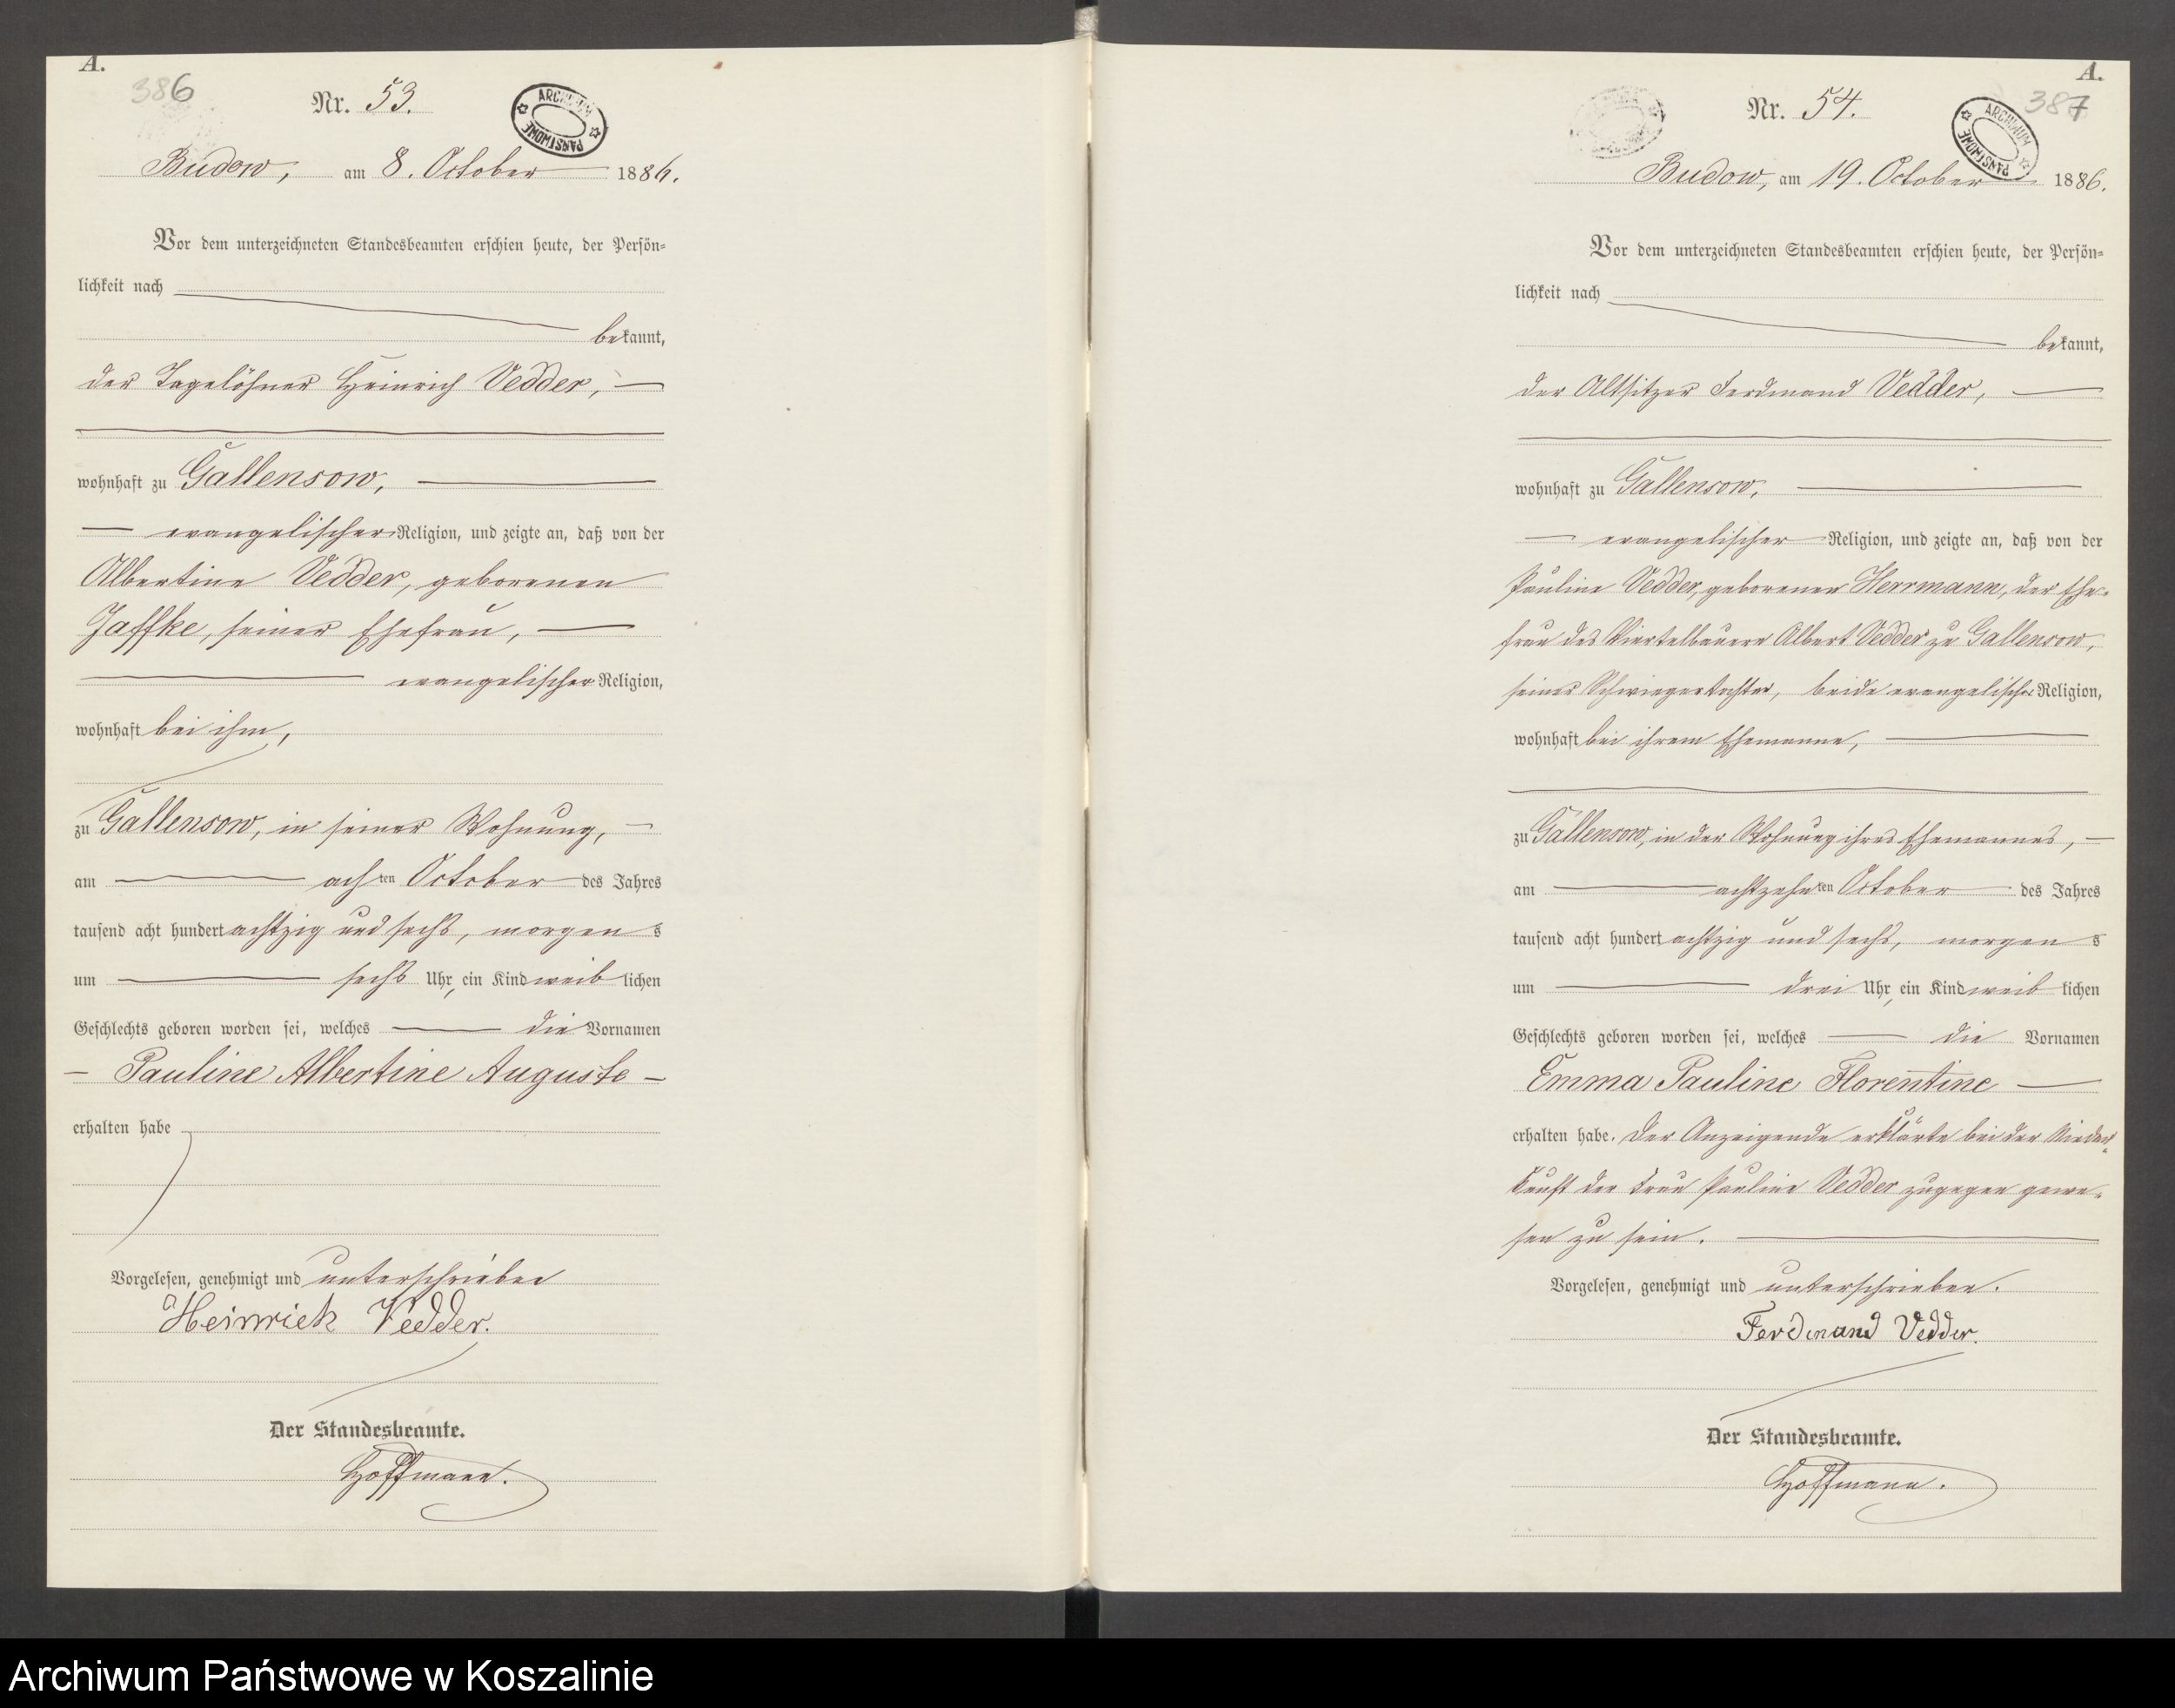 A.
386
Nr. 53.
ARCHIWUM PAŃSTWOWE
Budow, am 8. October 1886.
Vor dem unterzeichneten Standesbeamten erschien heute, der Persön-
lichkeit nach
bekannt,
der Tagelöhner Heinrich Vedder,
wohnhaft zu Gallensow,
evangelischer Religion, und zeigte an, daß von der
Albertine Vedder, geborenen
Jaffke, seiner Ehefrau,
evangelischer Religion,
wohnhaft bei ihm,
zu Gallensow, in seiner Wohnung,
am achten October des Jahres
tausend acht hundert achtzig und sechs, morgens
um sechs Uhr, ein Kind weiblichen
Geschlechts geboren worden sei, welches die Vornamen
Pauline Albertine Auguste
erhalten habe
Vorgelesen, genehmigt und unterschrieben
Heinrich Vedder.
Der Standesbeamte.
Hoffmann.
A.
387
Nr. 54.
ARCHIWUM PAŃSTWOWE
Budow, am 19. October 1886.
Vor dem unterzeichneten Standesbeamten erschien heute, der Persön-
lichkeit nach
bekannt,
der Altsitzer Ferdinand Vedder,
wohnhaft zu Gallensow,
evangelischer Religion, und zeigte an, daß von der
Pauline Vedder, geborenen Herrmann, der Ehe-
frau des Viertelbauern Albert Vedder zu Gallensow,
seiner Schwiegertochter, beide evangelischer Religion,
wohnhaft bei ihrem Ehemanne,
zu Gallensow, in der Wohnung ihres Ehemannes,
am achtzehnten October des Jahres
tausend acht hundert achtzig und sechs, morgens
um drei Uhr, ein Kind weiblichen
Geschlechts geboren worden sei, welches die Vornamen
Emma Pauline Florentine
erhalten habe. Der Anzeigende erklärte bei der Nieder-
kunft der Frau Pauline Vedder zugegen gewe-
sen zu sein.
Vorgelesen, genehmigt und unterschrieben.
Ferdinand Vedder.
Der Standesbeamte.
Hoffmann.
Archiwum Państwowe w Koszalinie